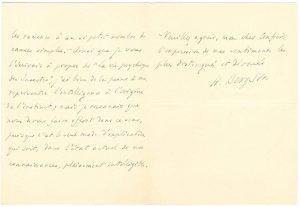 les ramener à un si petit nombre de
causes simples. Ainsi que je vous
l'écrivais à propos de "la vie psychique
des Insectes", j'ai bien de la peine à me
représenter l'intelligence à l'origine
de l'instinct; mais je reconnais que
nous devons faire effort dans ce sens,
puisque c'est le seul mode d'explication
qui soit, dans l'état actuel de nos
connaissances, pleinement intelligible.
Veuillez agréer, mon cher Confrère,
l'expression de mes sentiments les
plus distingués et dévoués
H. Bergson